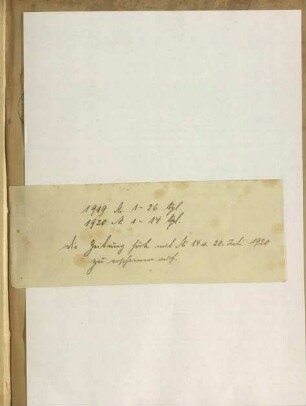 1919 Nr. 1-26 kpl.
1920 Nr. 1-14 kpl.
Die Zeitung hört mit Nr. 14 v. 20. Juli 1920
zu erscheinen auf.